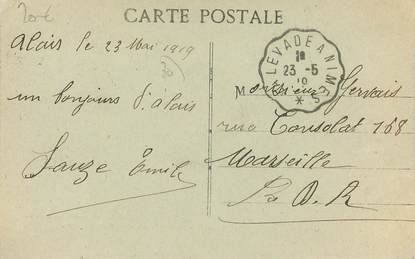 CARTE POSTALE
Alais le 23 Mai 1919
un bonjour d'alais
Sauze Emile
LEVADE A NIMES
23-5
19
Monsieur Gervais
rue Consolat 168
Marseille
B. D. R